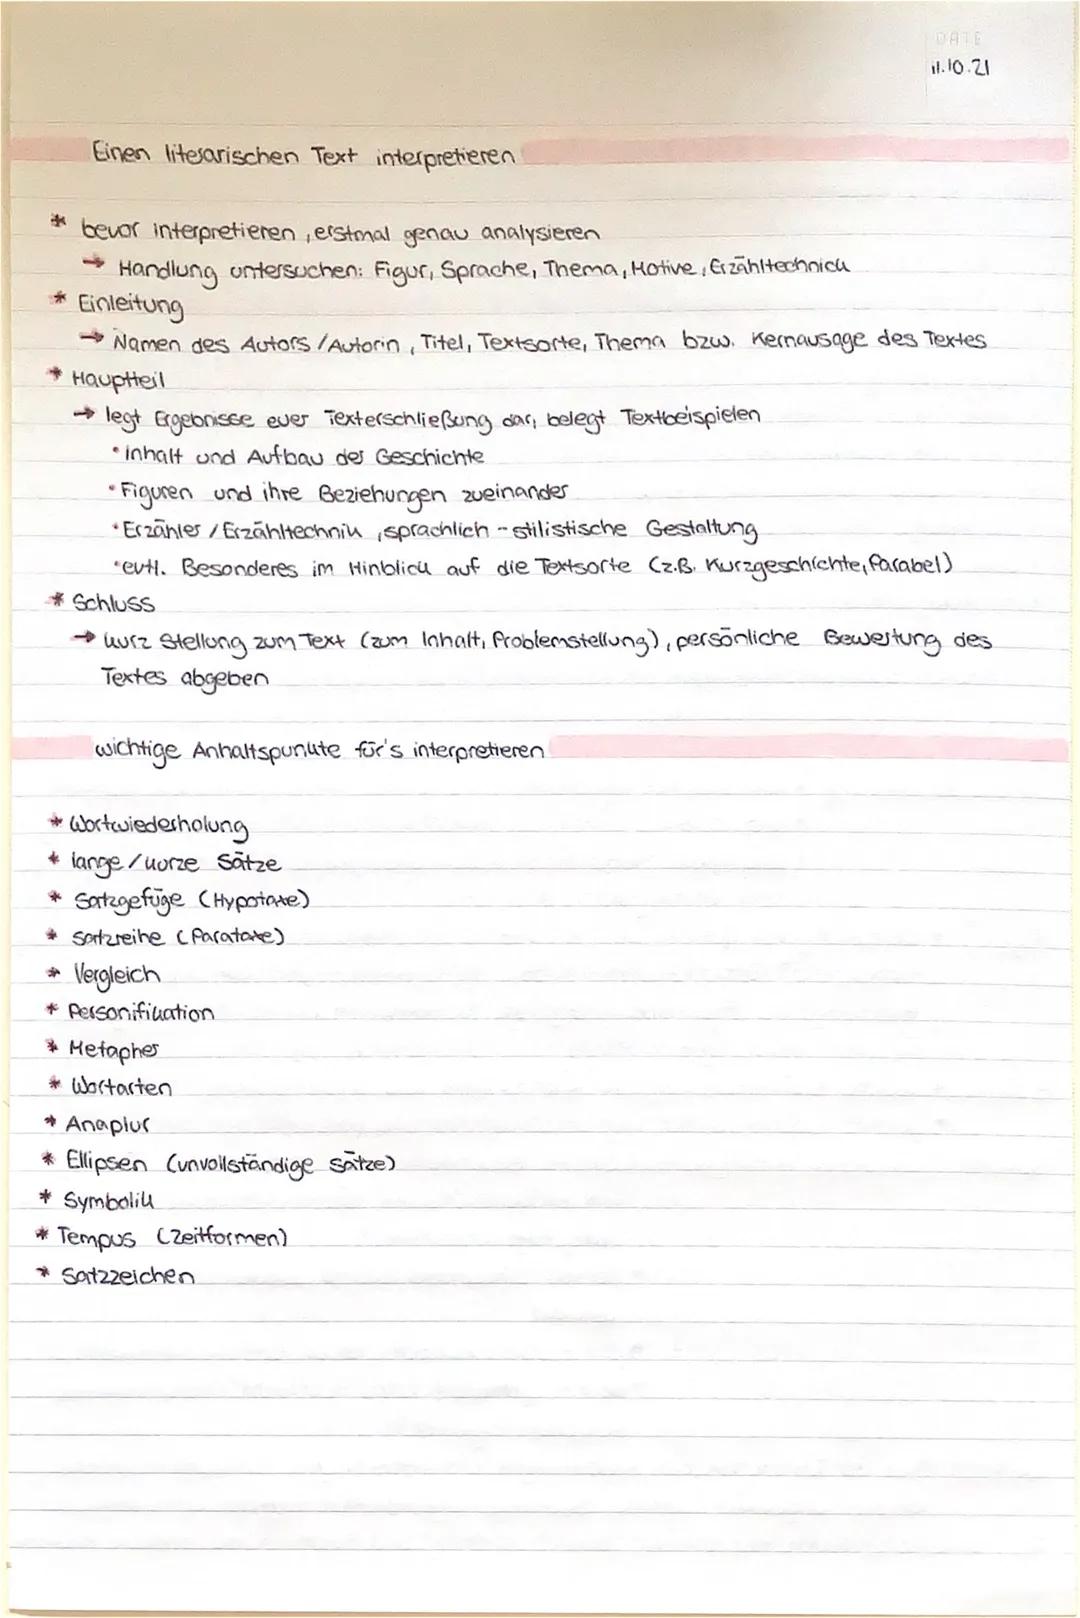 DATE
11.10.21
Einen literarischen Text interpretieren
* bevor interpretieren, erstmal genau analysieren
→ Handlung untersuchen: Figur, Sprache, Thema, Motive, Erzähltechnick
* Einleitung
→ Namen des Autors/Autorin, Titel, Textsorte, Thema bzw. Kernausage des Textes
* Hauptteil
→ legt Ergebnisse euer Texterschließung dar, belegt Textbeispielen
• Inhalt und Aufbau der Geschichte
• Figuren und ihre Beziehungen zueinander
• Erzähler/Erzähltechnik, sprachlich-stilistische Gestaltung
• evtl. Besonderes im Hinblick auf die Textsorte (z.B. Kurzgeschichte, Parabel)
* Schluss
→ kurz Stellung zum Text (zum Inhalt, Problemstellung), persönliche Bewertung des
Textes abgeben
wichtige Anhaltspunkte für's interpretieren
* Wortwiederholung
* lange/kurze Sätze
* Satzgefüge (Hypotaxe)
* Satzreihe (Parataxe)
* Vergleich
* Personifikation
* Metapher
* Wortarten
* Anaphur
* Ellipsen (unvollständige Sätze)
* Symbolik
* Tempus (Zeitformen)
* Satzzeichen